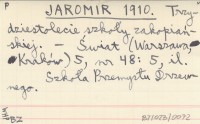 P
JAROMIR 1910. Trzy-
dziestolecie szkoły zakopiań-
skiej. - Świat (Warszawa,
Kraków) 5, nr 48: 5, il.
Szkoła Przemysłu Drzew-
nego.
BZ